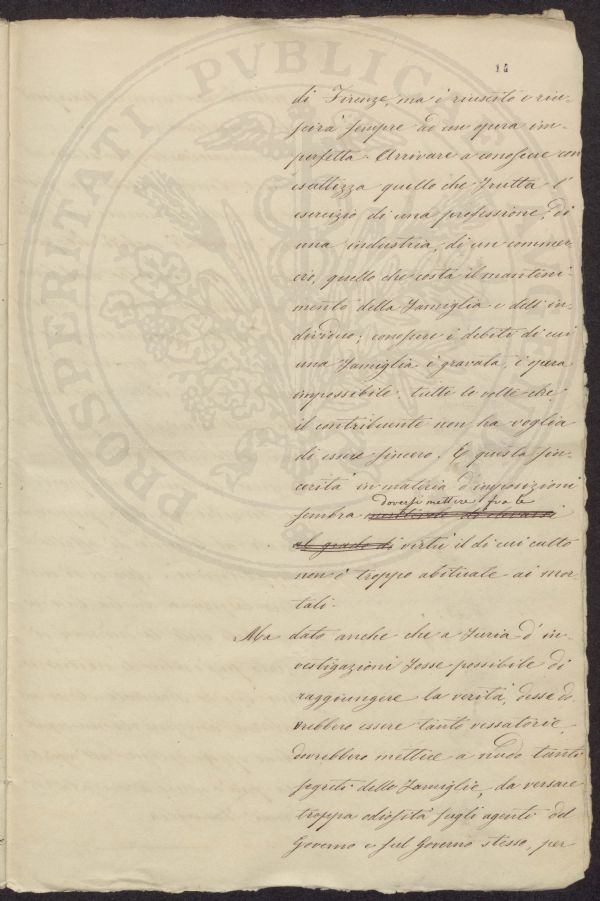 14
di Firenze, ma è riuscito e riu-
scirà sempre ad un opera im-
perfetta. Arrivare a conoscere con
esattezza quello che frutta l'
esercizio di una professione, di
una industria, di un commer-
cio, quello che costa il manteni-
mento della famiglia e dell' in-
dividuo; conoscere i debiti di cui
una famiglia è gravata, è opera
impossibile tutte le volte che
il contribuente non ha voglia
di essere sincero. E questa sin-
cerità in materia d'imposizioni
doversi mettere fra le
sembra di elevarsi
al grado di virtù il di cui culto
non è troppo abituale ai mor-
tali.
Ma dato anche che a furia d' in-
vestigazioni fosse possibile di
raggiungere la verità, desse do-
vrebbero essere tanto vessatorie,
dovrebbero mettere a nudo tanti
segreti delle famiglie, da versare
troppa odiosità sugli agenti del
Governo e sul Governo stesso, per
PROSPERITATI PVBLICAE AVG